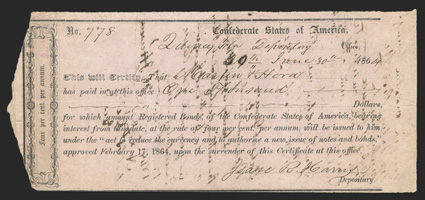 No. 778
Confederate States of America.
Quincy, Fla Depository Office,
30th June 1864
This will Certify, That
has paid in at this office One Thousand
Dollars,
for which amount Registered Bonds, of the Confederate States of America, bearing
interest from this date, at the rate of four per cent. per annum, will be issued to him
under the "act to reduce the currency and to authorise a new issue of notes and bonds,"
approved February 17, 1864, upon the surrender of this Certificate at this office.
Depositary.
Four per cent. per annum.